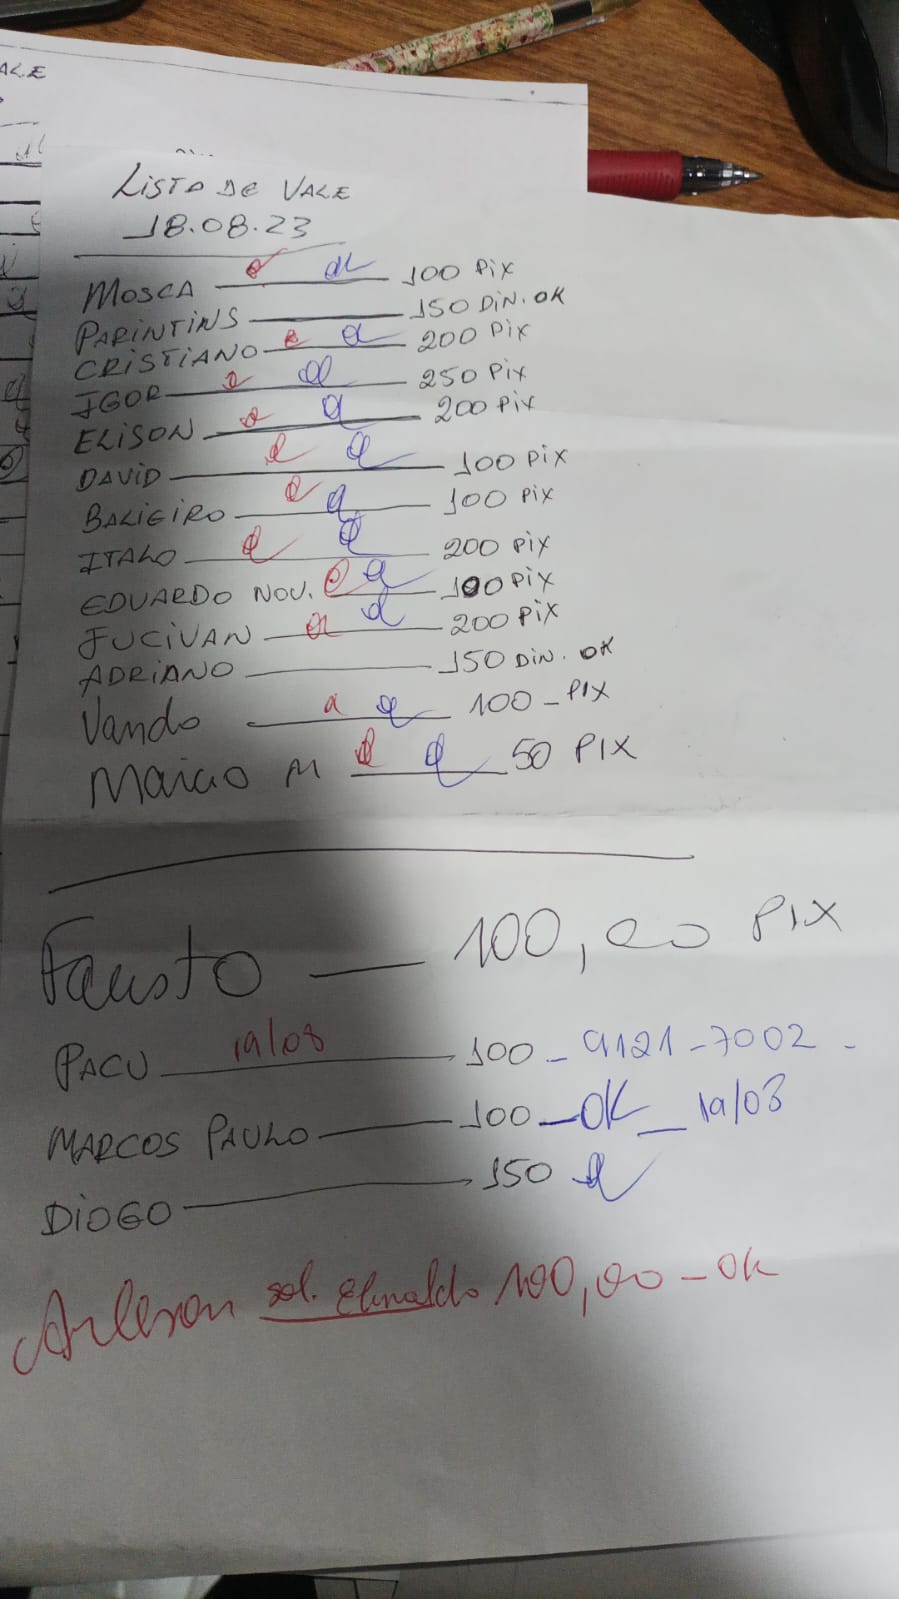 ALE
LISTA DE VALE
18.08.23
MOSCA 100 PIX
PARINTINS 150 DIN. OK
CRISTIANO 200 PIX
IGOR 250 PIX
ELISON 200 PIX
DAVID 100 PIX
BALIEIRO 100 PIX
ITALO 200 PIX
EDUARDO NOV. 100 PIX
JUCIVAN 200 PIX
ADRIANO 150 DIN. OK
Vando 100 - PIX
Marcio M 50 PIX
Fausto — 100,00 PIX
PACU 19/08 100 - 9121-7002 -
MARCOS PAULO 100 - OK - 19/08
DIOGO 150
Arleson sol. Elinaldo 100,00 - OK